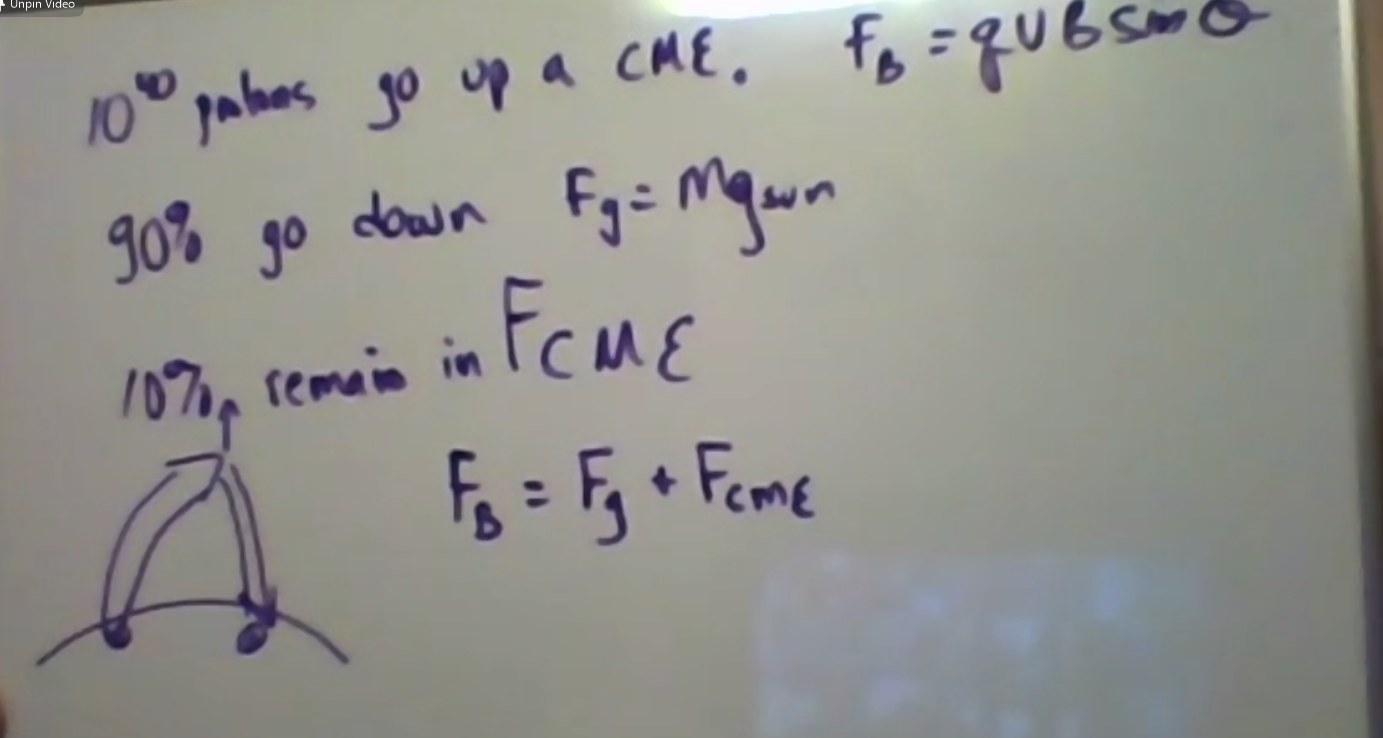 Unpin Video
10^40 protons go up a CME. F_B = qvB sin θ
90% go down F_g = Mg_sun
10% remain in F_CME
F_B = F_g + F_CME